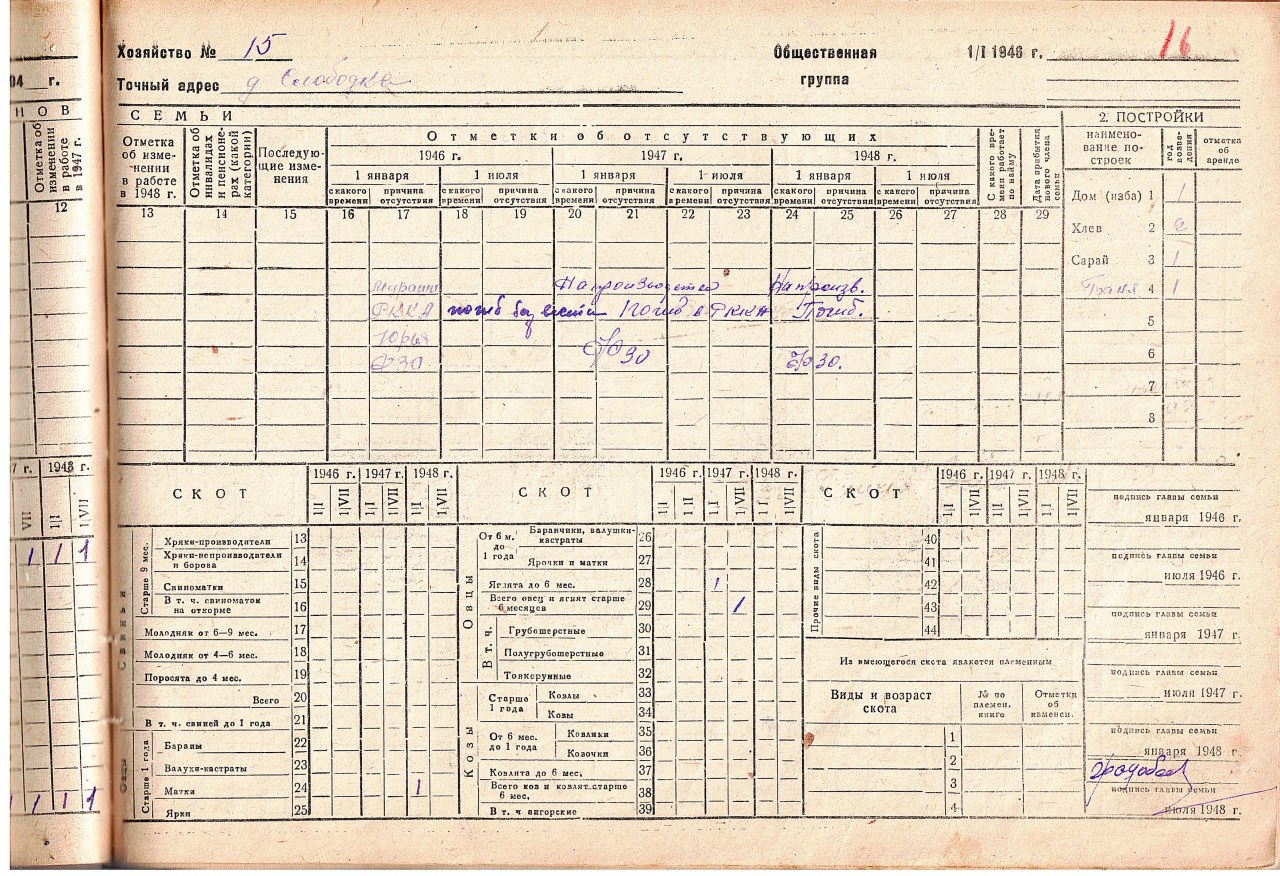 Хозяйство № 15
Общественная
группа
1/I 1946 г.
16
Точный адрес д Слободка
04 г.
Н О В
С Е М Ь И
2. ПОСТРОЙКИ
Отметка об изменении в работе в 1947 г.
12
Отметка об изменении в работе в 1948 г.
Отметка об инвалидах и пенсионерах (какой категории)
Последующие изменения
Отметки об отсутствующих
1946 г. 1947 г. 1948 г.
1 января 1 июля 1 января 1 июля 1 января 1 июля
с какого времени причина отсутствия с какого времени причина отсутствия с какого времени причина отсутствия с какого времени причина отсутствия с какого времени причина отсутствия с какого времени причина отсутствия
С какого времени работает по найму
Дата прибытия нового члена семьи
наименование построек
год возведения
отметка об аренде
13 14 15 16 17 18 19 20 21 22 23 24 25 26 27 28 29
Дом (изба) 1 1
Хлев 2 2
Сарай 3 1
Баня 4 1
5
6
7
8
На производстве На произв.
РККА погиб без вести Погиб в РККА Погиб.
ФЗО ФЗО ФЗО.
7 г. 1948 г.
VII 1|I 1|VII
1 1 1
1 1 1 1
С К О Т
1946 г. 1947 г. 1948 г.
1|I 1|VII 1|I 1|VII 1|I 1|VII
Свиньи
Старше 9 мес.
Хряки-производители 13
Хряки-непроизводители и борова 14
Свиноматки 15
В т. ч. свиноматок на откорме 16
Молодняк от 6—9 мес. 17
Молодняк от 4—6 мес. 18
Поросята до 4 мес. 19
Всего 20
В т. ч. свиней до 1 года 21
Овцы
Старше 1 года
Бараны 22
Валухи-кастраты 23
Матки 24 1
Ярки 25
С К О Т
1946 г. 1947 г. 1948 г.
1|I 1|II 1|I 1|VII 1|I 1|VII
Овцы
От 6 м. до 1 года
Баранчики, валушки-кастраты 26
Ярочки и матки 27
Ягнята до 6 мес. 28 1
Всего овец и ягнят старше 6 месяцев 29 1
В т. ч.
Грубошерстные 30
Полугрубошерстные 31
Тонкорунные 32
Козы
Старше 1 года
Козлы 33
Козы 34
От 6 мес. до 1 года
Козлики 35
Козочки 36
Козлята до 6 мес. 37
Всего коз и козлят старше 6 мес. 38
В т. ч ангорские 39
С К О Т
1946 г. 1947 г. 1948 г.
1|I 1|VII 1|I 1|VII 1|I 1|VII
Прочие виды скота
40
41
42
43
44
Из имеющегося скота является племенным
Виды и возраст скота
№ по племен. книге
Отметки об изменен.
1
2
3
4
подпись главы семьи
января 1946 г.
подпись главы семьи
июля 1946 г.
подпись главы семьи
января 1947 г.
подпись главы семьи
июля 1947 г.
подпись главы семьи
января 1948 г.
подпись главы семьи
июля 1948 г.